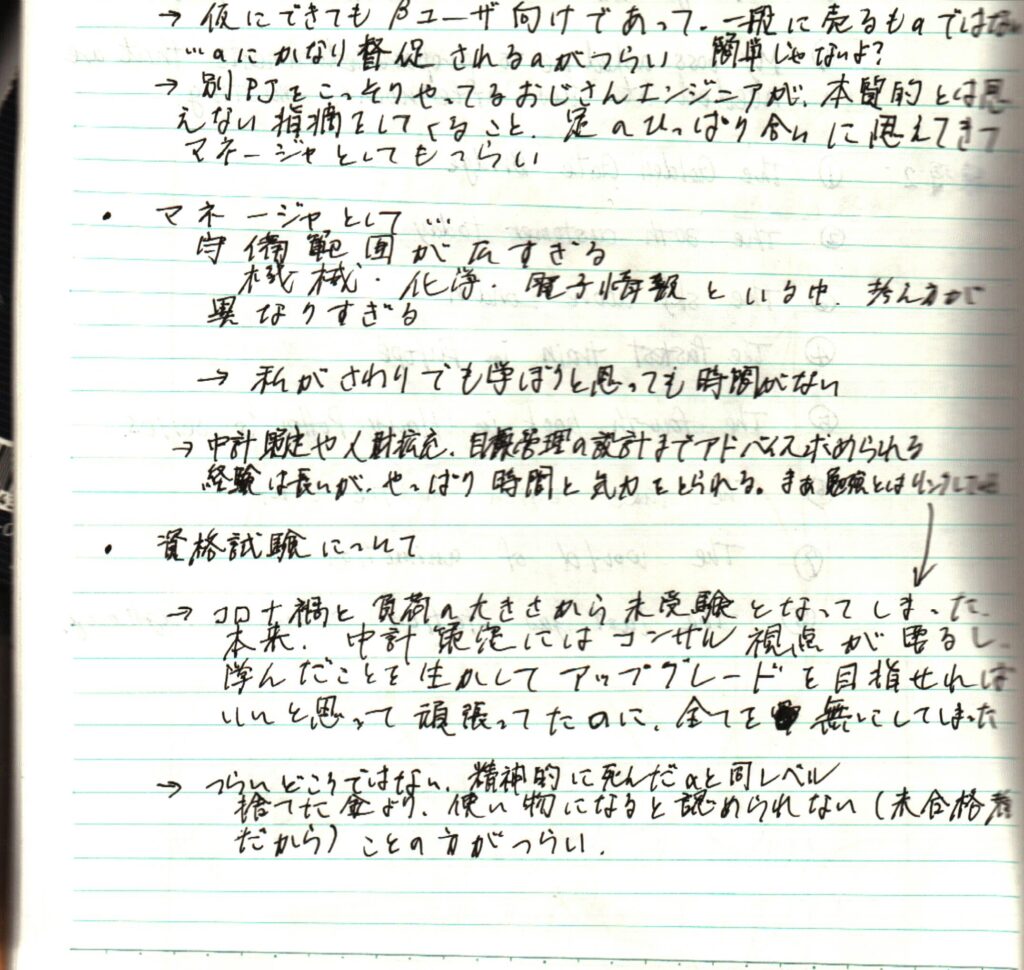 → 仮にできてもβユーザ向けであって、一般に売るものではない
…のにかなり督促されるのがつらい 簡単じゃないよ?
→ 別PJをこっそりやってるおじさんエンジニアが、本質的とは思
えない指摘をしてくること、足のひっぱり合いに思えてきて
マネージャとしてもつらい
・ マネージャとして…
守備範囲が広すぎる
機械・化学・電子情報といる中、考え方が
異なりすぎる
→ 私がさわりでも学ぼうと思っても時間がない
→ 中計策定や人財拡充、目標管理の設計までアドバイス求められる
経験は長いが、やっぱり時間と気力をとられる。まあ勉強とはリンクしてる
・ 資格試験について
→ コロナ禍と負荷の大きさから未受験となってしまった、
本来、中計策定にはコンサル視点が要るし、
学んだことを生かしてアップグレードを目指せれば
いいと思って頑張ってたのに、全てを無にしてしまった
→ つらいどころではない、精神的に死んだのと同レベル
捨てた金より、使い物になると認められない(未合格者
だから)ことの方がつらい.